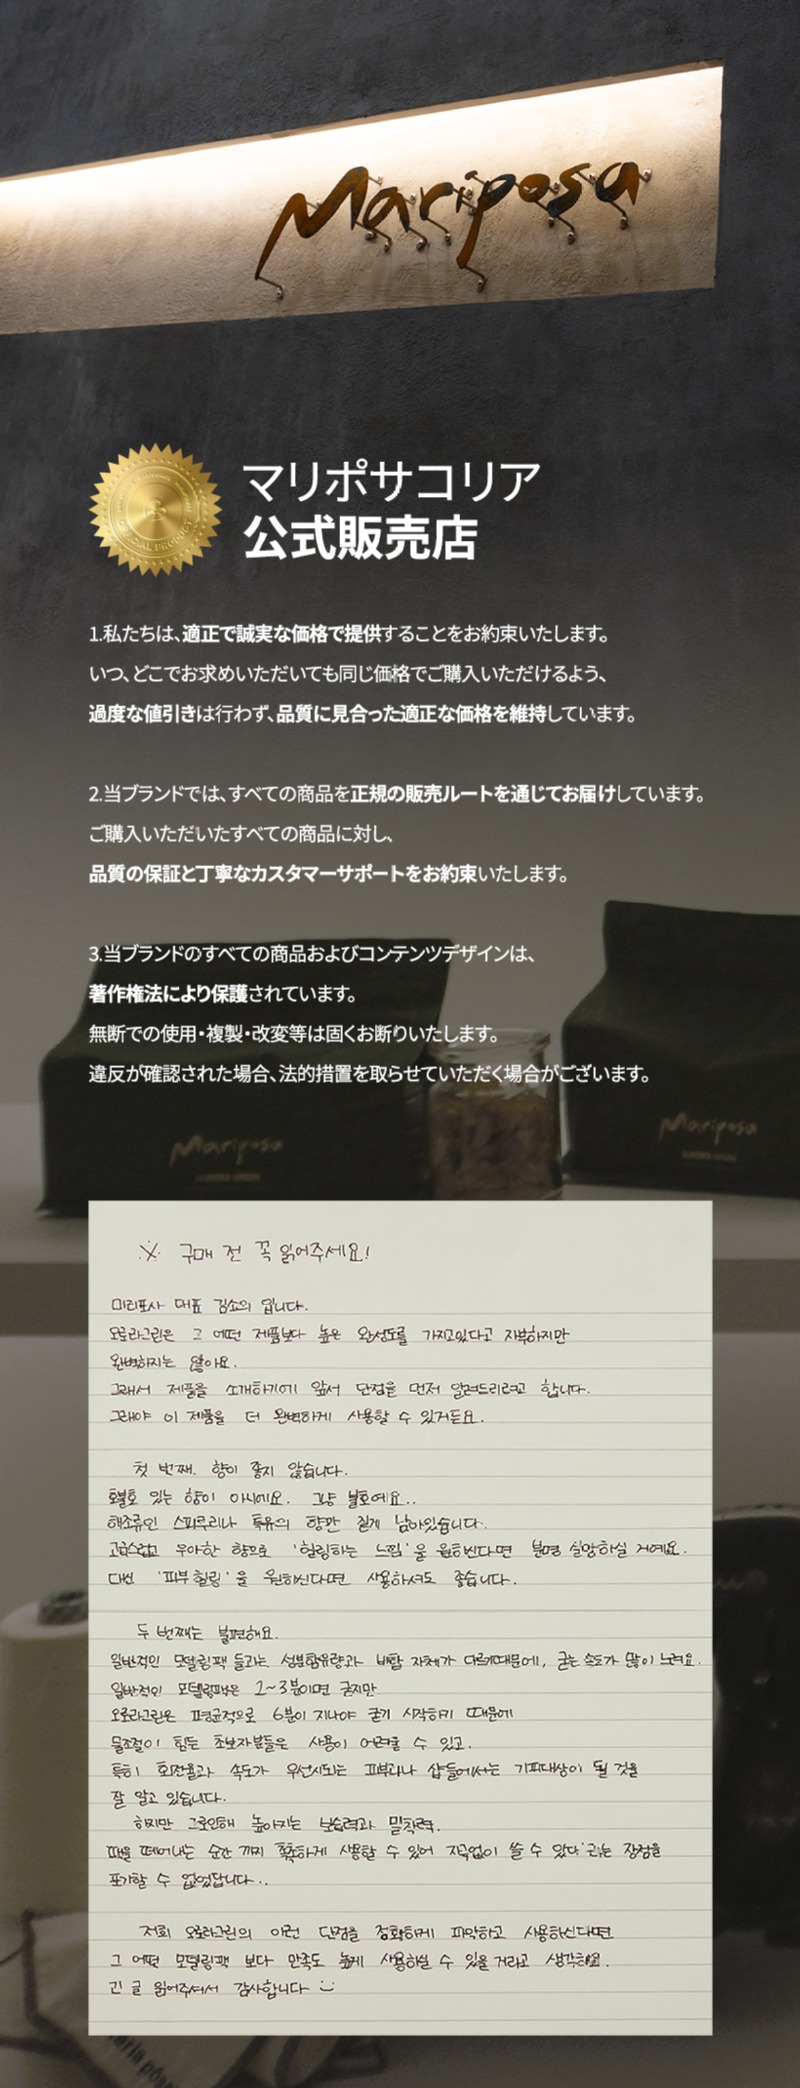 Mariposa
マリポサコリア
公式販売店
OFFICIAL PRODUCT
1.私たちは、適正で誠実な価格で提供することをお約束いたします。
いつ、どこでお求めいただいても同じ価格でご購入いただけるよう、
過度な値引きは行わず、品質に見合った適正な価格を維持しています。
2.当ブランドでは、すべての商品を正規の販売ルートを通じてお届けしています。
ご購入いただいたすべての商品に対し、
品質の保証と丁寧なカスタマーサポートをお約束いたします。
3.当ブランドのすべての商品およびコンテンツデザインは、
著作権法により保護されています。
無断での使用・複製・改変等は固くお断りいたします。
違反が確認された場合、法的措置を取らせていただく場合がございます。
Mariposa
Mariposa
※ 구매 전 꼭 읽어주세요!
마리포사 대표 김소의 입니다.
오로라그린은 그 어떤 제품보다 높은 완성도를 가지고있다고 자부하지만
완벽하지는 않아요.
그래서 제품을 소개하기에 앞서 단점을 먼저 알려드리려고 합니다.
그래야 이 제품을 더 완벽하게 사용할 수 있거든요.
첫 번째. 향이 좋지 않습니다.
호불호 있는 향이 아니에요. 그냥 불호예요..
해조류인 스피루리나 특유의 향만 짙게 남아있습니다.
고급스럽고 우아한 향으로 '힐링하는 느낌'을 원하신다면 분명 실망하실 거예요.
대신 '피부힐링'을 원하신다면 사용하셔도 좋습니다.
두 번째는 불편해요.
일반적인 모델링팩 들과는 성분함유량과 배합 자체가 다르기때문에, 굳는 속도가 많이 느려요.
일반적인 모델링팩은 2~3분이면 굳지만
오로라그린은 평균적으로 6분이 지나야 굳기 시작하기 때문에
물조절이 힘든 초보자분들은 사용이 어려울 수 있고.
특히 회전율과 속도가 우선시되는 피부과나 샵들에서는 기피대상이 될 것을
잘 알고 있습니다.
하지만 그로인해 높아지는 보습력과 밀착력.
팩을 떼어내는 순간 까지 촉촉하게 사용할 수 있어 자극없이 쓸 수 있다'라는 장점을
포기할 수 없었답니다..
저희 오로라그린의 이런 단점을 정확하게 파악하고 사용하신다면
그 어떤 모델링팩 보다 만족도 높게 사용하실 수 있을거라고 생각해요.
긴 글 읽어주셔서 감사합니다